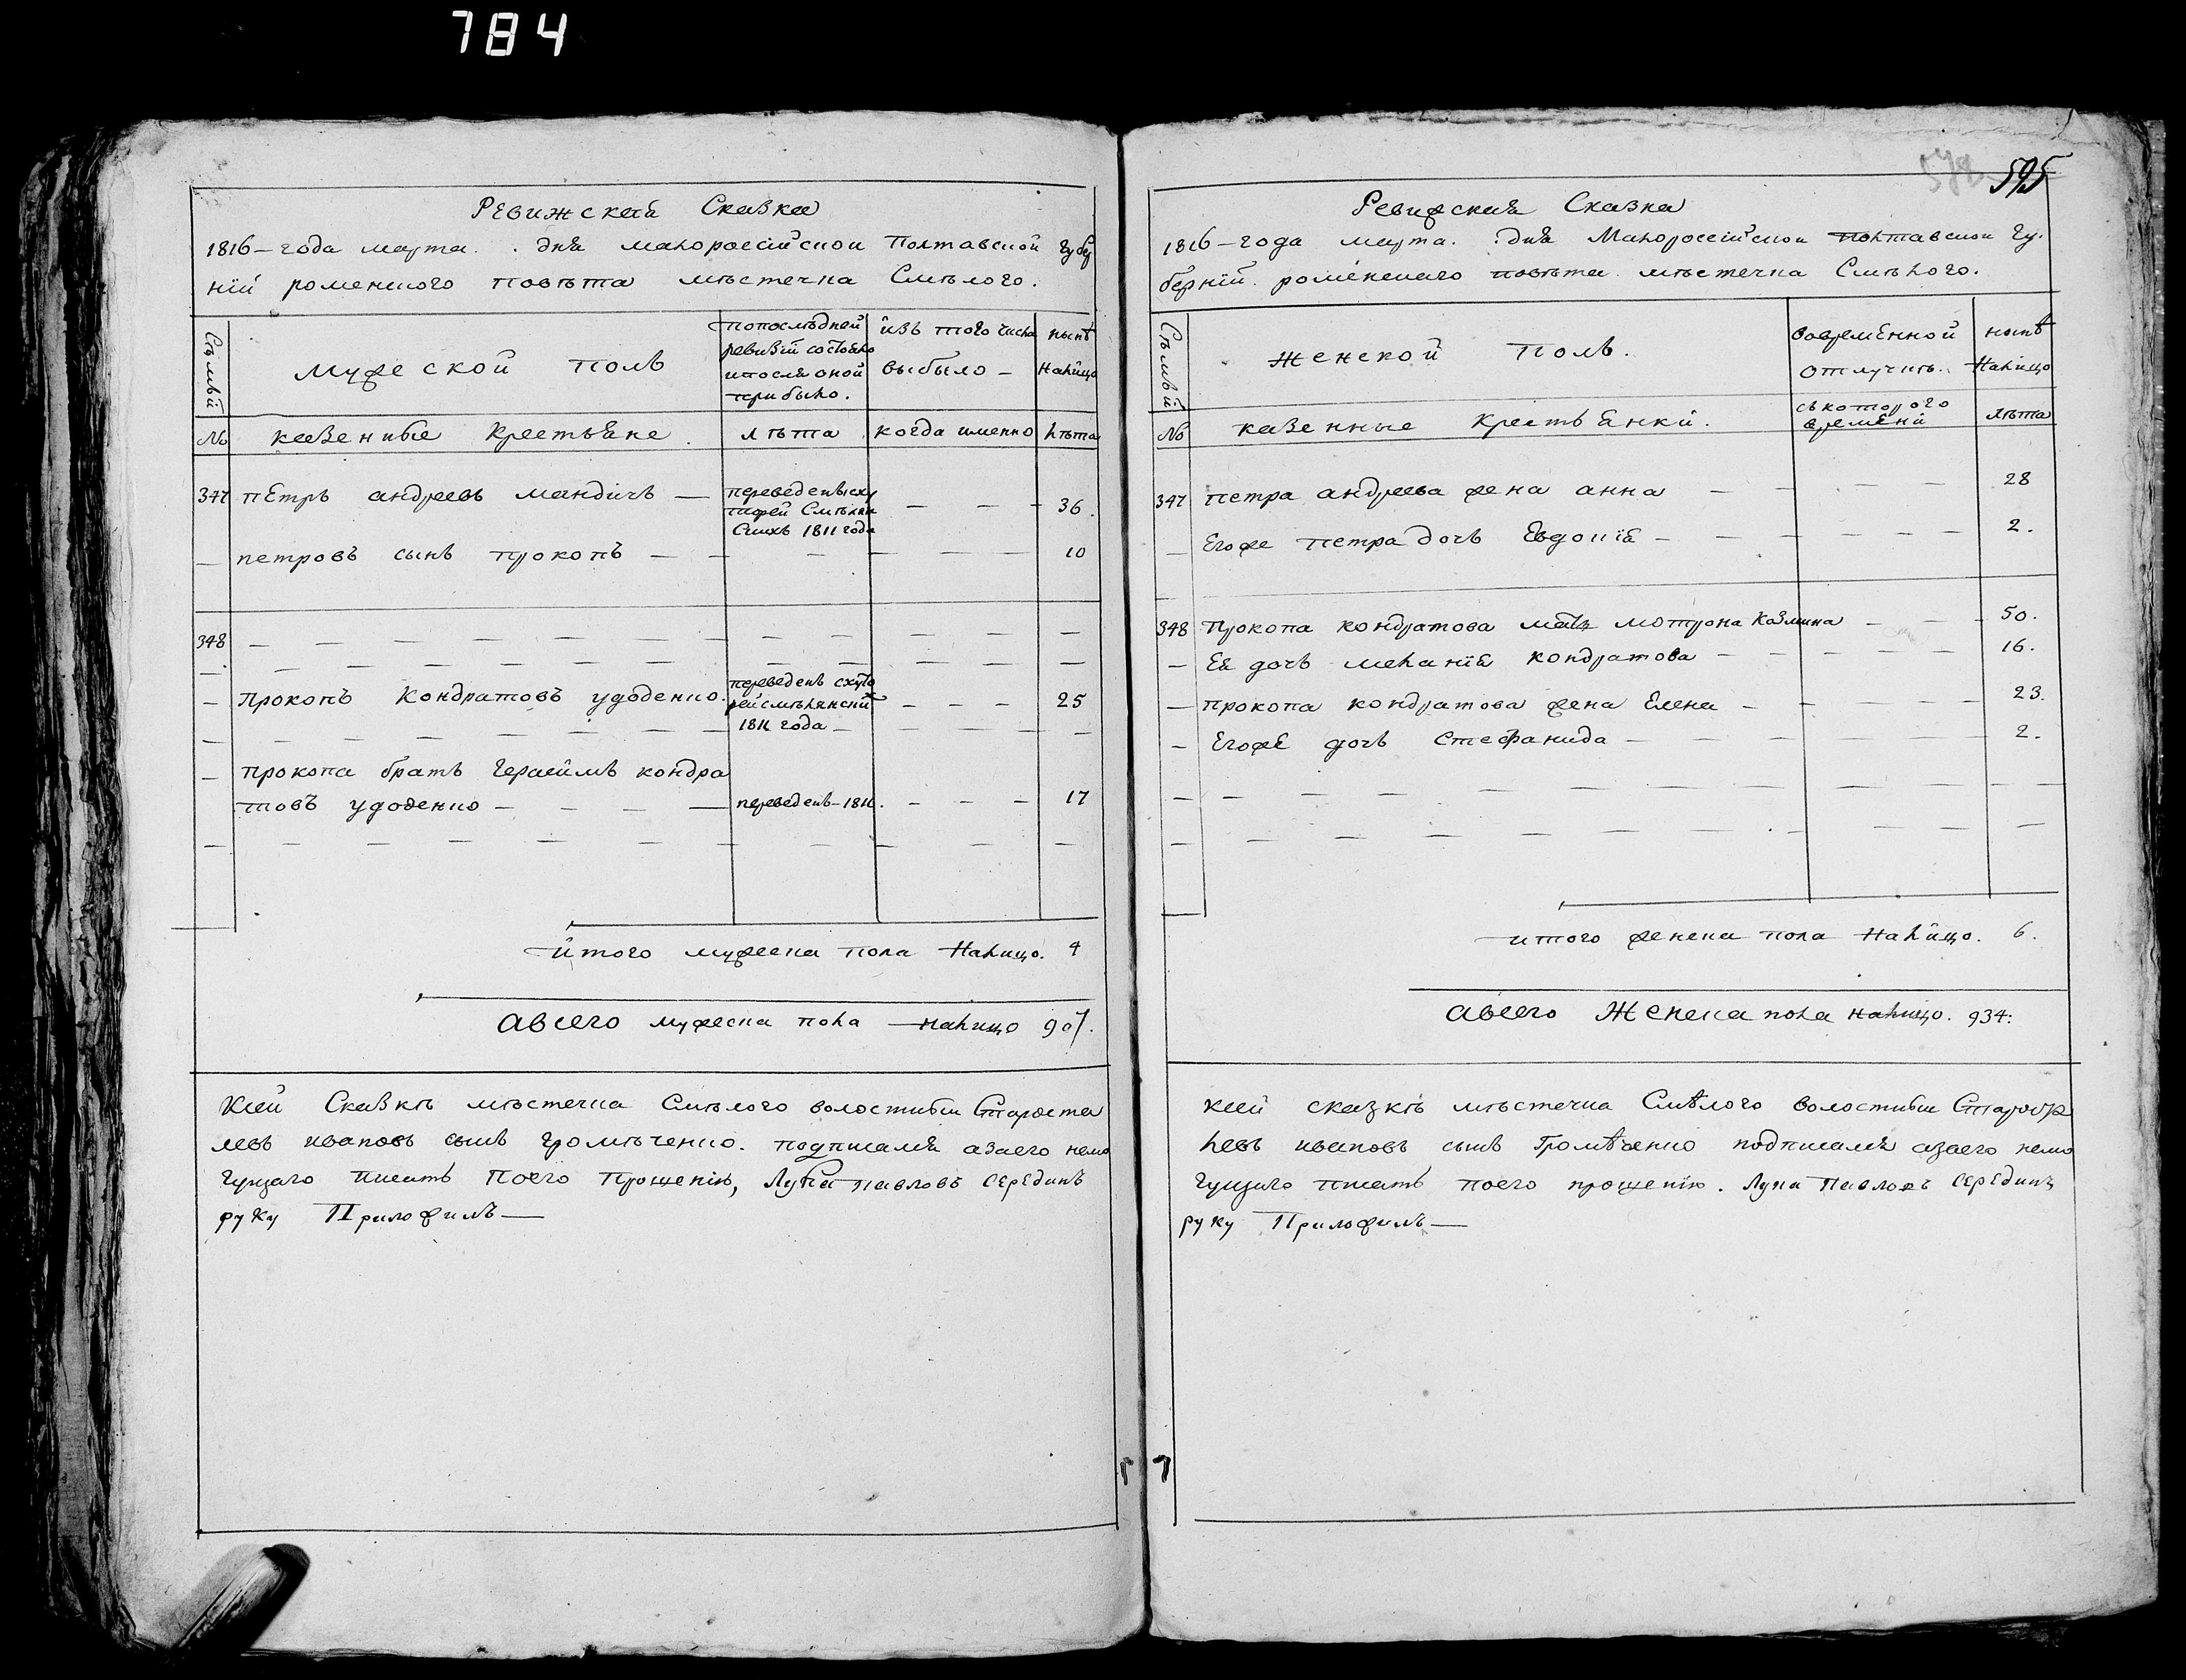 784
595
Ревижская Сказка
1816 – года марта . дня малороссійской Полтавской губер
ніи роменского повѣта мѣстечка Смѣлого.
Сѣмьи
Мужеской полъ
попослѣдней ревизіи состояло ипослѣ оной прибыло.
изъ того числа выбыло –
нынѣ налицо
№ казенные крестьяне. лѣта когда именно лѣта
347 петръ андреевъ мандичъ — переведенъ схуторей Смѣлянскихъ 1811 года — — — 36.
— петровъ сынъ прокопъ — — — — — — 10
348 — — — — — — — — — — —
— прокопъ кондратовъ удоденко. переведенъ схуторей смѣлянскихъ 1811 года — — — — 25
— прокопа братъ герасимъ кондра
товъ удоденко — — — — переведенъ – 1811. — — — 17
итого мужеска пола налицо. 4
авсего мужеска пола налицо 907.
Ксей Сказкѣ мѣстечка Смѣлого волостныи Староста
левъ ивановъ сынъ громѣченко. подписался азаего немо
гущаго писать поего прошенію, Лука павловъ середикъ
руку Приложилъ —
Ревижская Сказка
1816 – года марта. дня Малороссійской полтавской гу.
берніи. роменскаго повѣта мѣстечка Смѣлого.
Сѣмьи
женской полъ.
вовремѣнной отлучкѣ.
нынѣ налицо
№ казенные крестьянки. съкоторого времени лѣта
347 петра андреева жена анна — — — — 28
— Егоже петра дочь Евдокія — — — — — 2.
348 прокопа кондратова мать мотрона Казмина — — — 50.
— Ея дочь меланія кондратова — — — — — 16.
— прокопа кондратова жена Елена — — — — 23.
— Егоже дочь стефанида — — — — — 2.
итого женска пола налицо. 6.
авсего Женска пола налицо. 934:
ксей сказкѣ мѣстечка Смѣлого волостныи Староста
левъ ивановъ сынъ Громѣченко подписался азаего немо
гущаго писать поего прошенію. Лука Павловъ середикъ
руку Приложилъ —